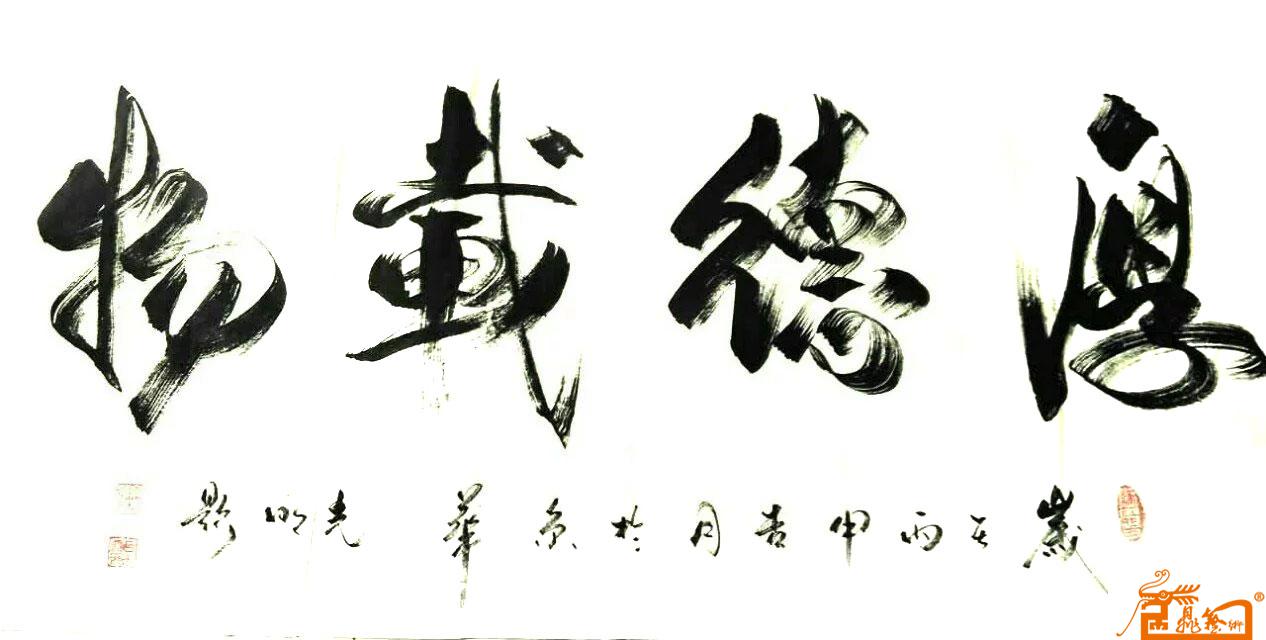 厚德載物
歲在丙申吉月於京華 光明題